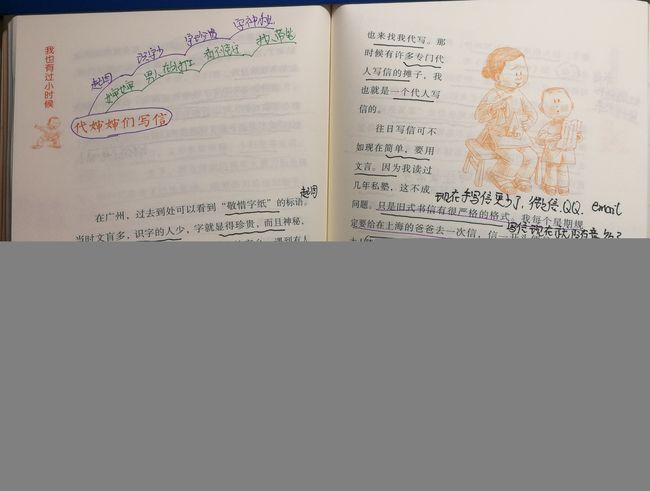 我也有过小时候
起因
识字少
字珍贵
字神秘
婶婶
男人在外打工
代婶婶们写信
起因
在广州，过去到处可以看到“敬惜字纸”的标语。
当时文盲多，识字的人少，字就显得珍贵，而且神秘，
也来找我代写。那
时候有许多专门代
人写信的摊子，我
也就是一个代人写
信的。
往日写信可不
如现在简单，要用
文言。因为我读过
几年私塾，这不成
现在手写信更少了，微信、QQ、email
问题。只是旧式书信有很严格的格式。我每个星期规
写信现在
定要给在上海的爸爸去一次信，信一开头